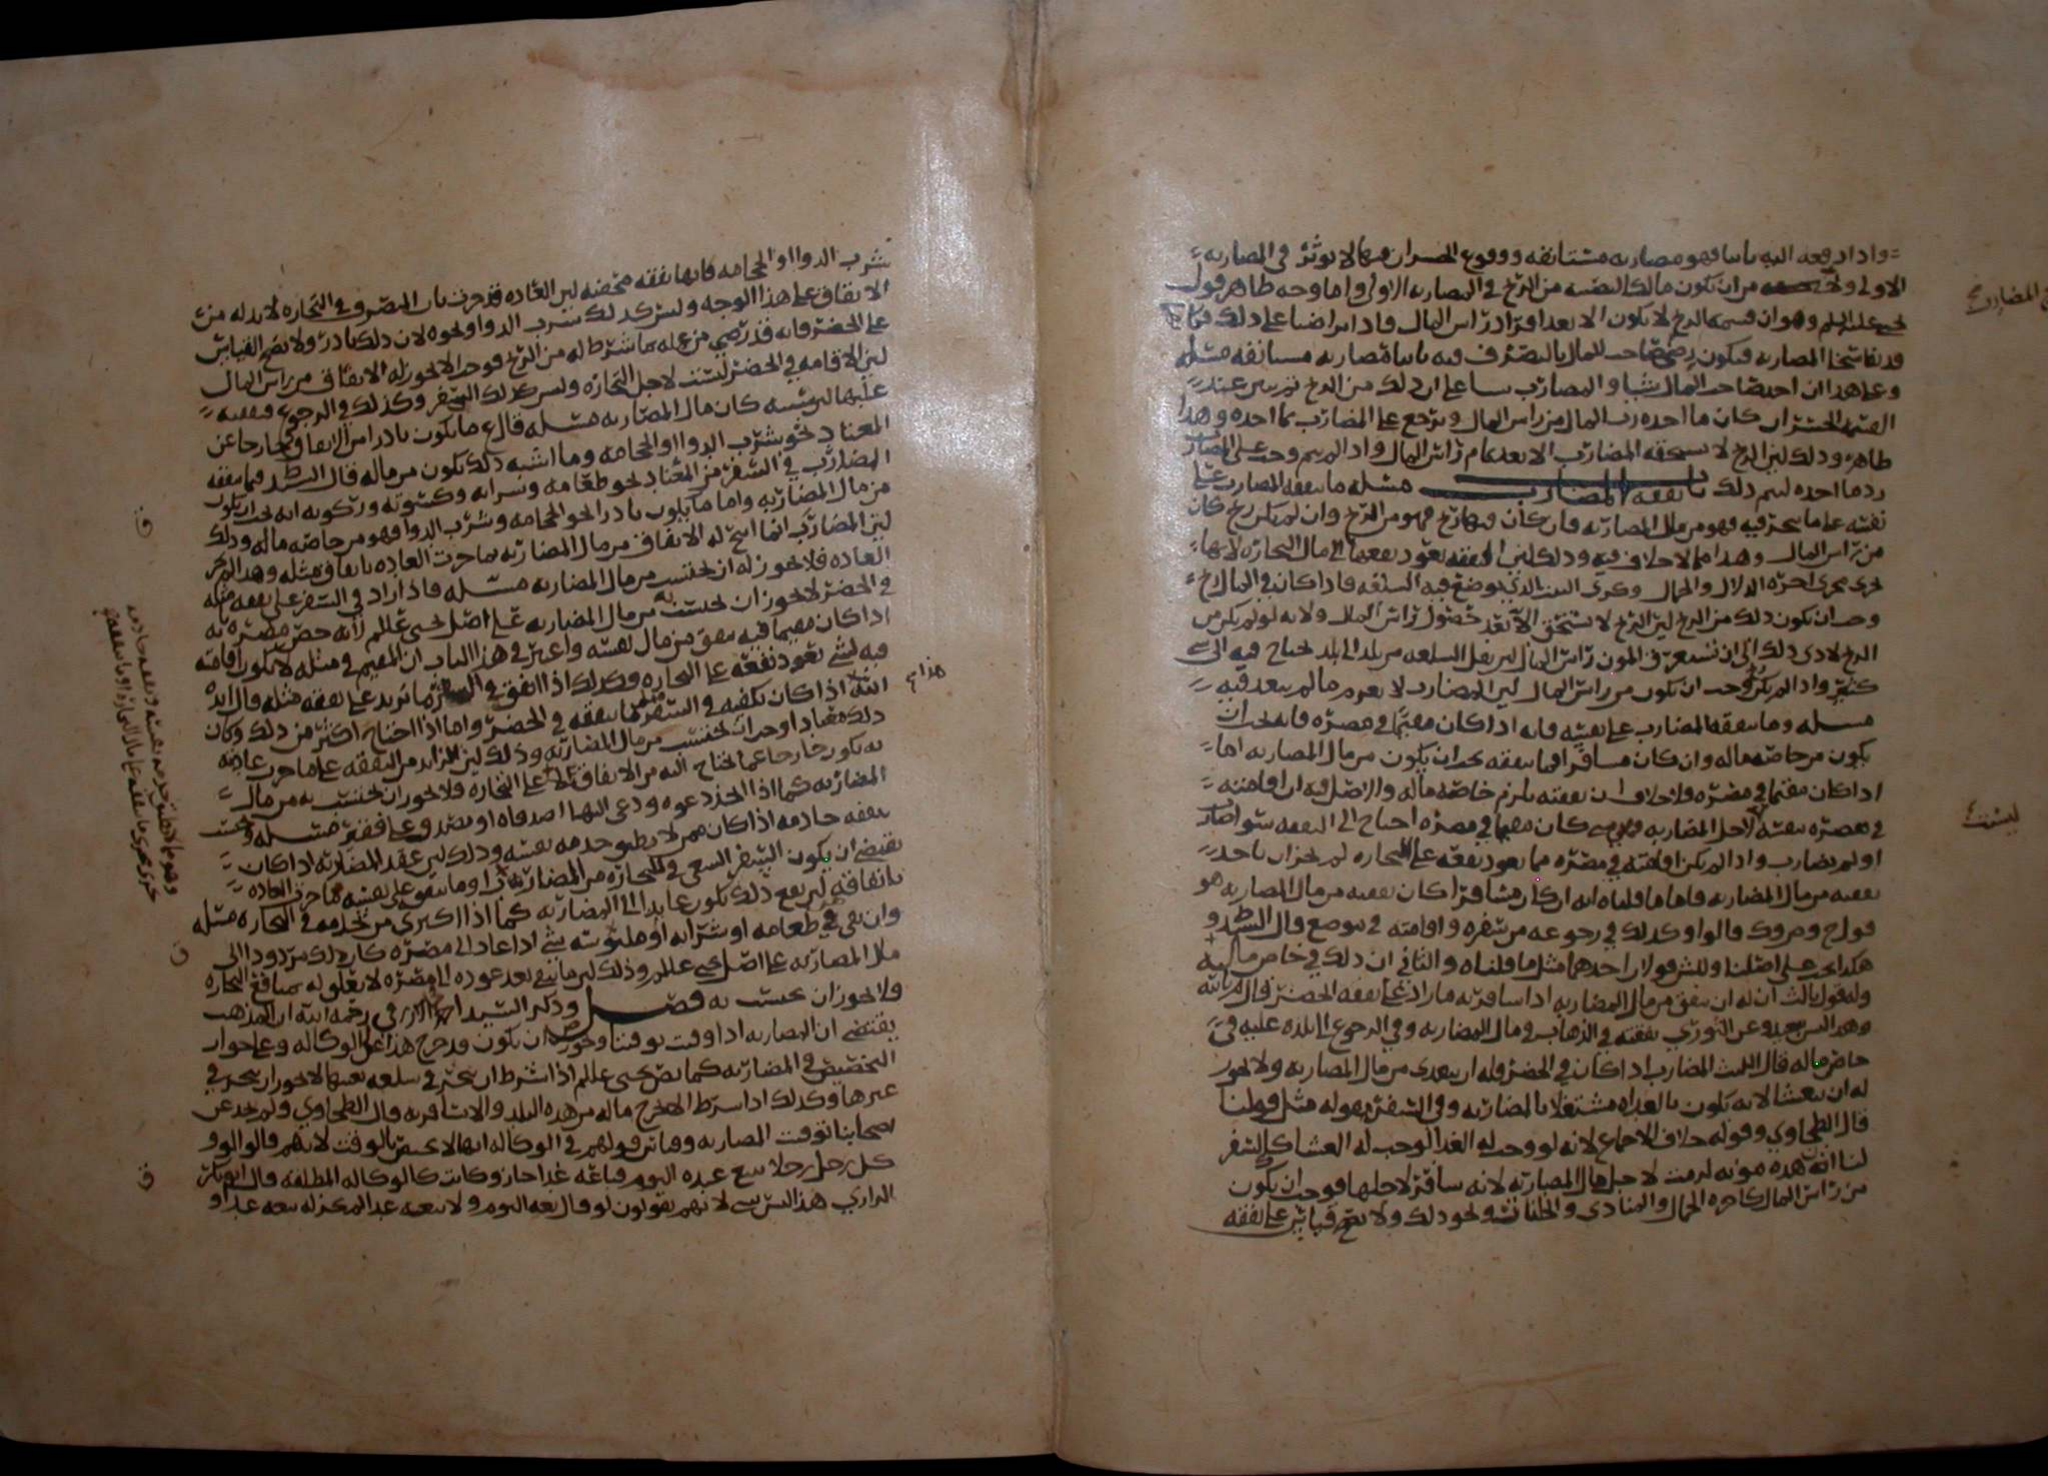 واذا دفعه اليه ثانيا فهو مضاربه مستانفه ووقوع الخسران فيها لا يوثر في المضاربه
الاولى من ان يكون مالك لنصيبه من الربح في المضاربه الاولى واما وجه ظاهر قول
يحيى عليه السلم وهو ان قسمه الربح لا يكون الا بعد افراد راس المال فاذا تراضيا على ذلك
قد تفاسخا المضاربه فيكون رضى صاحب المال بالتصرف فيه ثانيا مضاربه مستانفه مسله
وعلى هذا ان اخذ صاحب المال شيا والمضارب شيا على ان ذلك من الربح ثم تبين عند
القسمه الخسران كان ما اخذه رب المال من راس المال ويرجع على المضارب بما اخذه وهذا
ظاهر وذلك لان الربح لا يستحقه المضارب الا بعد تمام راس المال واذا لم يتم وجب على المضارب
رد ما اخذه ليتم ذلك باب نفقه المضارب مسله ما ينفقه المضارب على
نفسه على ما يتجر فيه فهو من مال المضاربه فان كان فيها ربح فهو من الربح وان لم يكن ربح كان
من راس المال وهذا مما لا خلاف فيه وذلك لان النفقه يعود نفعها الى مال التجاره لانها
تجري مجرى اجره الدلال والحمال وكرى البيت الذي يوضع فيه السلعه فاذا كان في المال ربح
وجب ان يكون ذلك من الربح لان الربح لا يستحق الا بعد حصول راس المال ولانه لو لم يكن من
الربح لادى ذلك الى ان تستغرق المون راس المال لان نقل السلعه من بلد الى بلد يحتاج فيه الى شي
كثير واذا لم يكن ربح وجب ان يكون من راس المال لان المضارب لا يغرم ما لم يتعد فيه
مسله وما ينفقه المضارب على نفسه فانه اذا كان مقيما في مصره فانه يجب ان
يكون من خاصه ماله وان كان مسافرا فما ينفقه يجب ان يكون من مال المضاربه اما
اذا كان مقيما في مصره فلا خلاف ان نفقته يلزم خاصه ماله والاصل فيه ان اقامته
في مصره ليست لاجل المضاربه كان مقيما في مصره احتاج الى النفقه سوا ضارب
او لم يضارب واذا لم يكن اقامته في مصره مما يعود نفعه على التجاره لم يجز ان ياخذ
نفقته من مال المضاربه فاما ما قلناه انه ان كان مسافرا كان نفقته من مال المضاربه هو
قول ح و ص وك قالوا وكذلك في رجوعه من سفره واقامته في موضع قال السيد و
هكذا يجب على اصلنا وللش قولان احدهما مثل ما قلناه والثاني ان ذلك في خاص ماله
وله قول ثالث ان له ان ينفق من مال المضاربه اذا سافر به ما زاد على نفقه الحضر قال
وعن الثوري نفقته في الذهاب في مال المضاربه وفي الرجوع الى بلده عليه في
خاص ماله قال الليث المضارب اذا كان في الحضر فله ان يتغدى من مال المضاربه ولا يجوز
له ان يتعشا لانه يكون بالغداه مشتغلا بالمضاربه وفي السفر قوله مثل قولنا
قال الطحاوي وقوله خلاف الاجماع لانه لو وجب له الغدا لوجب له العشا كالسفر
لنا ان هذه مونه لزمت لاجل مال المضاربه لانه سافر لاجلها فوجب ان يكون
من راس المال كاجره الحمال والمنادي والخانات ونحو ذلك ولا يصح قياس على نفقه
المضارب
ليست
شرب الدوا او الحجامه فانها نفقه تخصه لان العاده قد جرت بان المتصرف في التجاره لا بد له من
الانفاق على هذا الوجه وليس كذلك شرب الدوا ونحوه لان ذلك نادر ولا يصح القياس
على الحضر فانه قد رضي من عمله بما شرط له من الربح فوجب الا يجوز له الانفاق من راس المال
لان الاقامه في الحضر ليست لاجل التجاره وليس كذلك السفر وكذلك في الرجوع
عليها كان مال المضاربه مسله قال ع ما يكون نادرا من الانفاق خارجا عن
المعتاد نحو شرب الدوا او الحجامه وما اشبه ذلك يكون من ماله قال السيد فما ينفقه
المضارب في السفر من المعتاد نحو طعامه وشرابه وكسوته وركوبه انه يجب ان يكون
من مال المضاربه واما ما يكون نادرا نحو الحجامه وشرب الدوا فهو من خاصه ماله وذلك
لان المضارب انما ابيح له الانفاق من مال المضاربه بما جرت العاده بانفاق مثله وهذا لم تجر
العاده فلا يجوز له ان يحتسب من مال المضاربه مسله فاذا زاد في السفر على نفقه مثله
في الحضر لا يجوز ان يحتسب به من مال المضاربه على اصل يحيى عللم لانه خص مصره به
اذا كان مقيما فيه ينفق من مال نفسه واعتبر في هذا الباب ان المقيم في مثله لا يكون اقامته
فيه لشي يعود نفعه على التجاره وكذلك اذا انفق في السفر ما يزيد على نفقه مثله قال ايده
الله هذا اذا كان يكفيه في السفر مثل ما ينفقه في الحضر واما اذا احتاج اكثر من ذلك وكان
ذلك معتادا وجب ان يحتسب من مال المضاربه وذلك لان الزايد من النفقه على ما جرت عادته
به يكون خارجا عما يحتاج اليه من الانفاق على التجاره فلا يجوز ان يحتسب به من مال
المضاربه كما اذا اتخذ دعوه ودعى اليها اصدقاه او تصدق على فقير مسله وتحتسب
نفقه خادمه اذا كان ممن لا يطيق خدمه نفسه وذلك لان عقد المضاربه اذا كان
يقتضي ان يكون السفر السعي في التجاره من المضارب وما ينفق على نفسه مما جرت العاده
بانفاقه لان نفع ذلك يكون عايدا الى المضاربه كما اذا اكترى من يخدمه في التجاره مسله
وان بقي في طعامه او شرابه او ملبوسه شي اذا عاد الى مصره كان ذلك مردودا الى
مال المضاربه على اصل يحيى عللم وذلك لان ما بقي بعد عوده الى مصره لا تعلق له بمنافع التجاره
ولا يجوز ان يحتسب به فصل وذكر السيد رحمه الله ان المذهب
يقتضي ان المضاربه اذا وقت توقتا وجوز ان يكون قد خرج هذا على الوكاله وعلى جواز
التخصيص في المضاربه كما نص يحيى عللم اذا شرط ان يتجر في سلعه بعينها لا يجوز ان يتجر في
غيرها وكذلك اذا اشترط الا يخرج ماله من هذه البلد والا يسافر به قال الطحاوي ولم نجد عن
اصحابنا توقت المضاربه وقياس قولهم في الوكاله انها لا يختص بالوقت لانهم قالوا لو و
كل رجل رجلا ببيع عبده اليوم فباعه غدا جاز وكانت كالوكاله المطلقه قال ابو بكر
الرازي هذا ليس بشي لانهم يقولون لو قال بعه اليوم ولا تبعه غدا لم يكن له بيعه غدا و
هذا